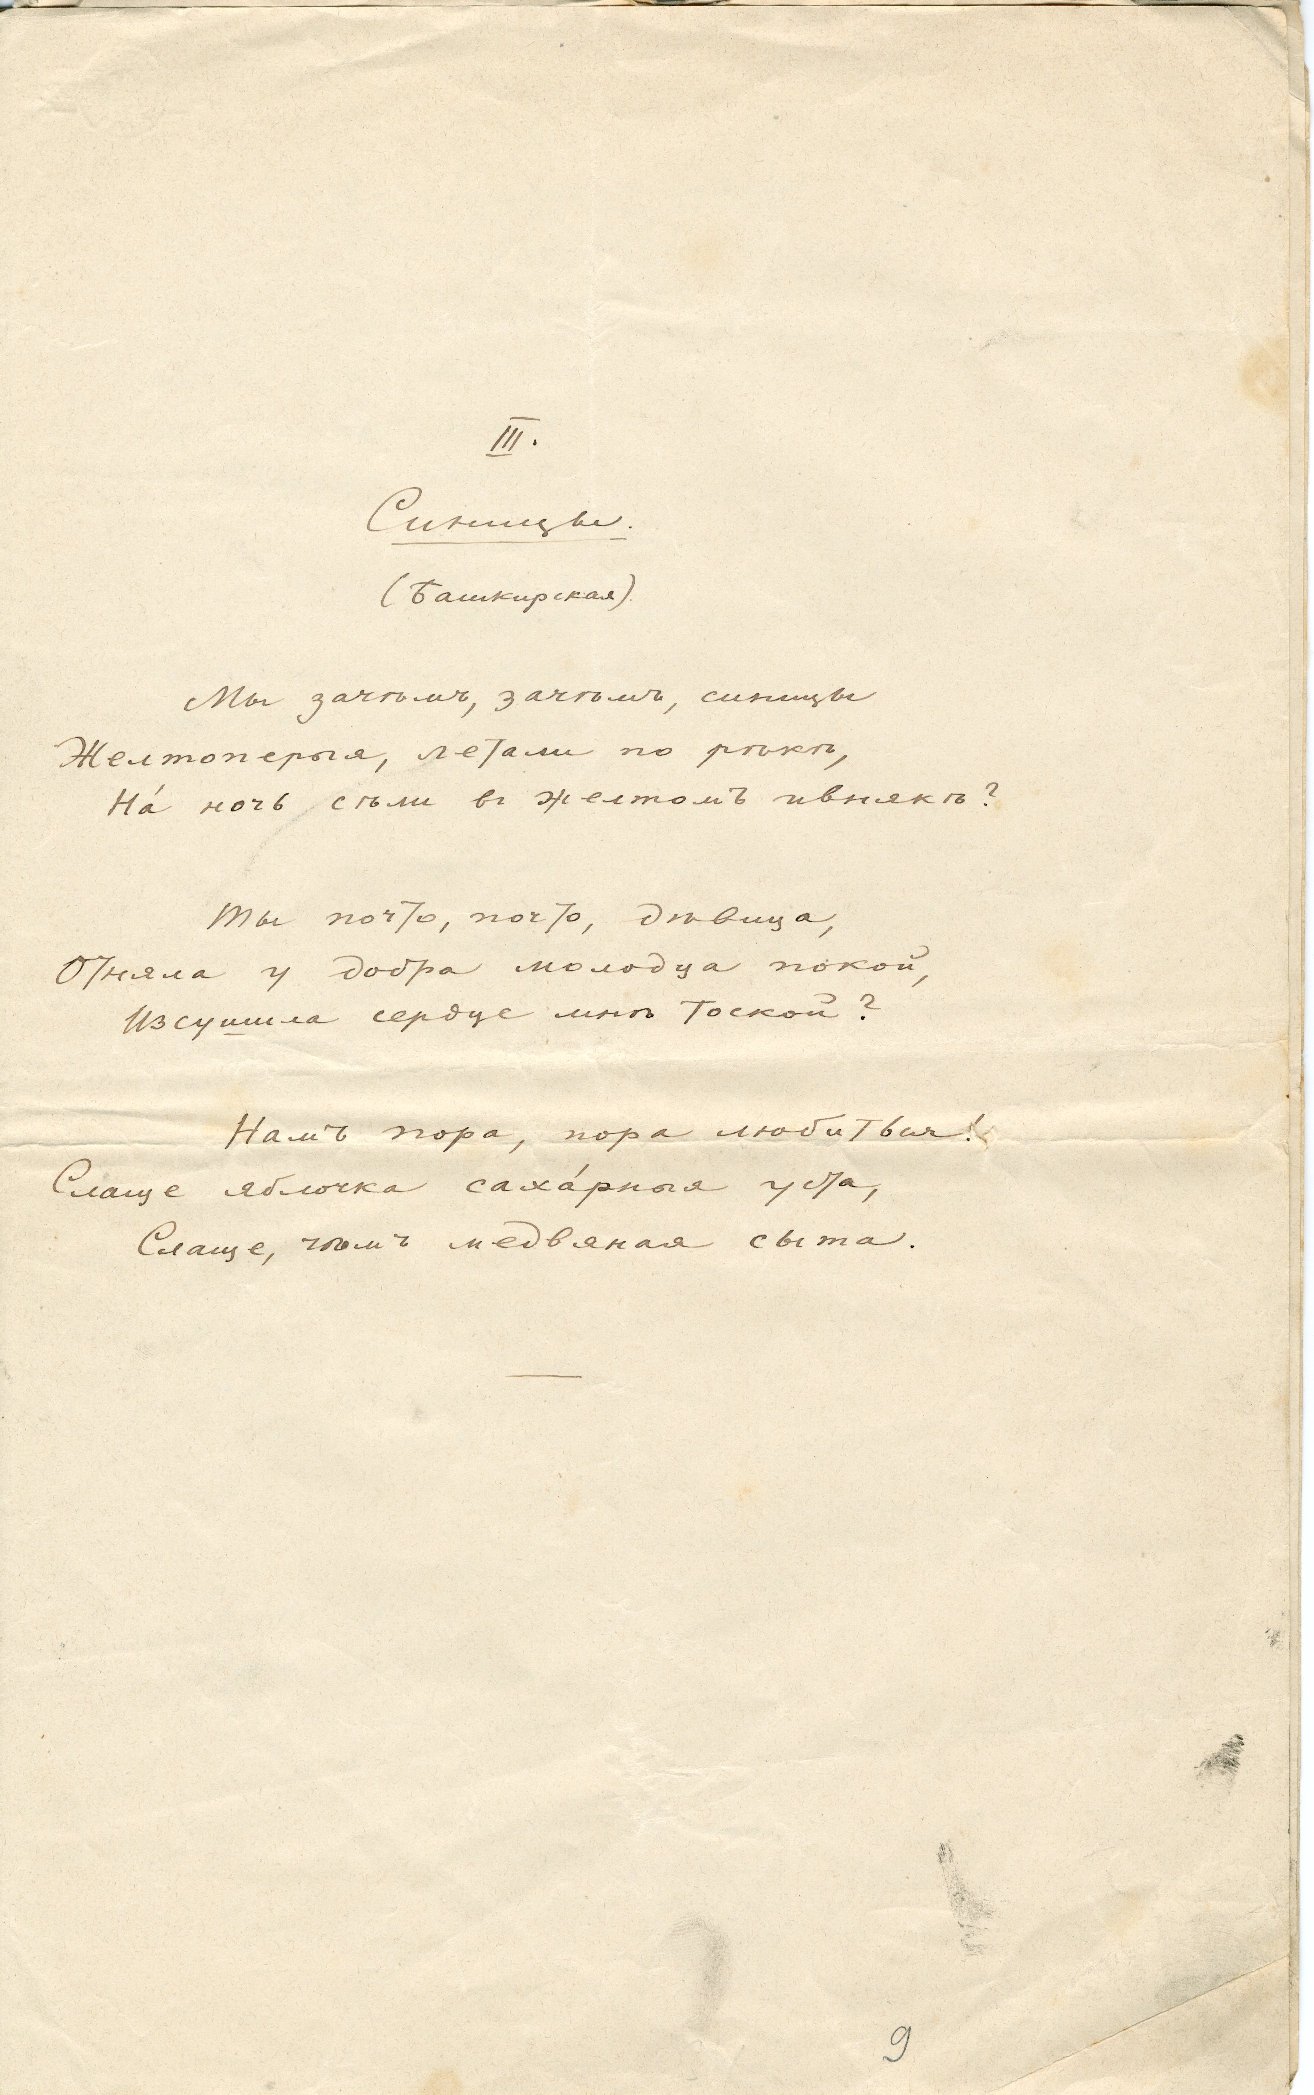 III.
Синицы.
(Башкирская)
Мы зачѣмъ, зачѣмъ, синицы
Желтоперыя, летали по рѣкѣ,
На́ ночь сѣли въ желтомъ ивнякѣ?
Ты почто, почто, дѣвица,
Отняла у добра молодца покой,
Изсушила сердце мнѣ тоской?
Намъ пора, пора любиться!
Слаще яблочка саха́рныя уста,
Слаще, чѣмъ медвяная сыта.
9